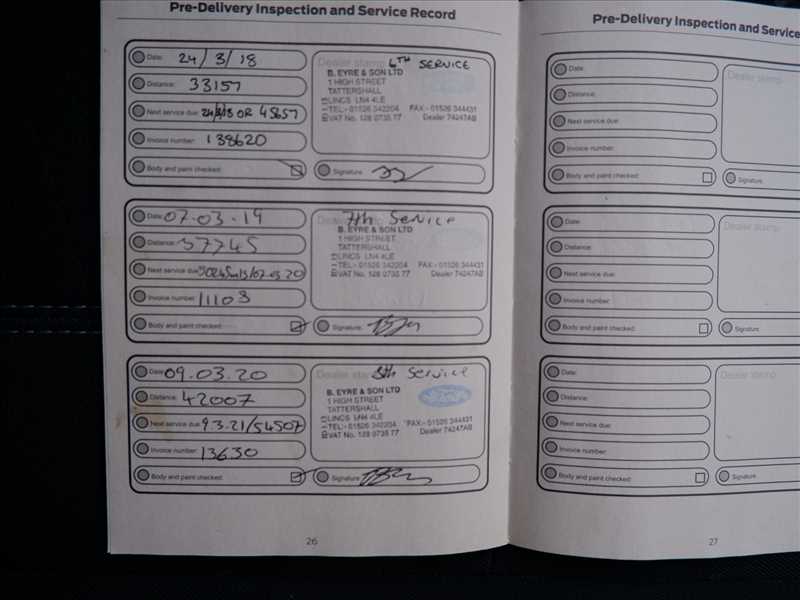 Pre-Delivery Inspection and Service Record
Date: 24/3/18
Distance: 33157
Next service due: OR 45657
Invoice number: 138620
Body and paint checked:
Dealer stamp 6TH SERVICE
B. EYRE & SON LTD
1 HIGH STREET
TATTERSHALL
LINCS LN4 4LE
TEL:- 01526 342204 FAX:- 01526 344431
VAT No. 128 0735 77 Dealer 74247AB
Signature:
Date: 07.03.19
Distance: 37745
Next service due: /07.03.20
Invoice number: 11103
Body and paint checked:
Dealer stamp 7th Service
B. EYRE & SON LTD
1 HIGH STREET
TATTERSHALL
LINCS LN4 4LE
TEL:- 01526 342204 FAX:- 01526 344431
VAT No. 128 0735 77 Dealer 74247AB
Signature:
Date: 09.03.20
Distance: 42007
Next service due: 9.3.21/54507
Invoice number: 13630
Body and paint checked:
Dealer stamp 8th Service
B. EYRE & SON LTD
1 HIGH STREET
TATTERSHALL
LINCS LN4 4LE
TEL:- 01526 342204 FAX:- 01526 344431
VAT No. 128 0735 77 Dealer 74247AB
Ford
Signature:
26
Pre-Delivery Inspection and Service
Date:
Distance:
Next service due:
Invoice number:
Body and paint checked:
Dealer stamp
Signature:
Date:
Distance:
Next service due:
Invoice number:
Body and paint checked:
Dealer stamp
Signature:
Date:
Distance:
Next service due:
Invoice number:
Body and paint checked:
Dealer stamp
Signature:
27